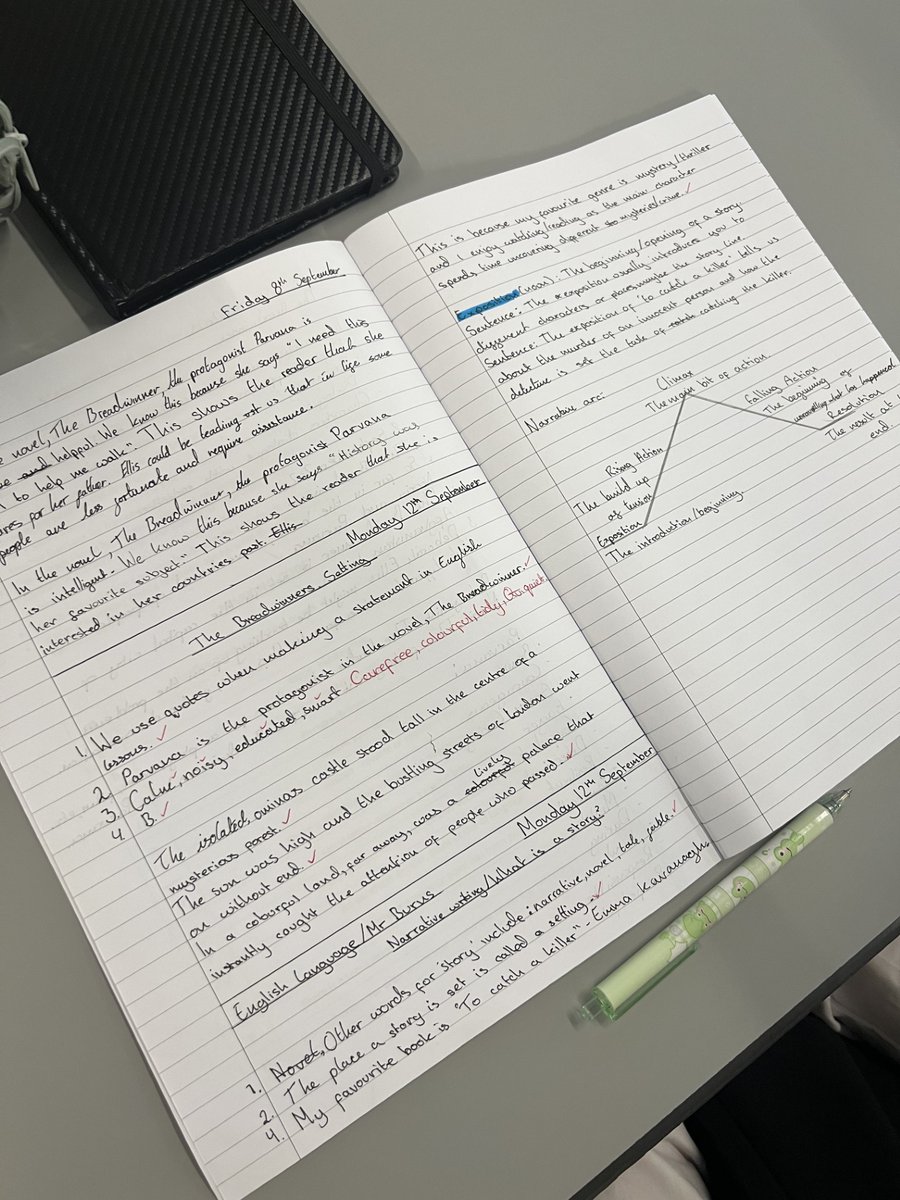 Friday 8th September
novel, The Breadwinner, the protagonist Parvana is
and helpful. We know this because she says "I need this
to help me walk". This shows the reader that she
for her father. Ellis could be leading us that in life some
people are less fortunate and require assistance.
In the novel, The Breadwinner, the protagonist Parvana
is intelligent. We know this because she says "History was
her favourite subject." This shows the reader that she is
interested in her countries past. Ellis
Monday 12th September
The Breadwinners Setting
1. We use quotes when making a statement in English
lessons. ✓
2. Parvana is the protagonist in the novel, The Breadwinner. ✓
3. Calm, noisy, educated, smart Carefree, colourful, tidy, quiet
4 B. ✓
The isolated, ominas castle stood tall in the centre of a
mysterious forest. ✓
The sun was high and the bustling streets of London went
on without end. ✓
lively
In a colourful land, far away, was a colourful palace that
instantly caught the attention of people who passed. ✓
Monday 12th September
English Language/Mr Burns
Narrative writing/What is a story?
1. Novel, Other words for 'story' include: narrative, novel, tale, fable. ✓
2. The place a story is set is called a setting. ✓
4. My favourite book is "To catch a killer" - Emma Kavanagh
This is because my favourite genre is mystery/thriller
and I enjoy watching/reading as the main character
spends time uncovering different mysteries/crime. ✓
Exposition (noun): The beginning/opening of a story.
Sentence: The exposition usually introduces you to
different characters or places the story line
Sentence: The exposition of 'to catch a killer' tells us
about the murder of an innocent person and how the
detective is set the task of catching the killer.
Narrative arc:
Climax
The main bit of action
Falling Action
The beginning of
unravelling what has happened
Resolution
The result at
end.
Rising Action
The build up
of tension
Exposition
The introduction/beginning.